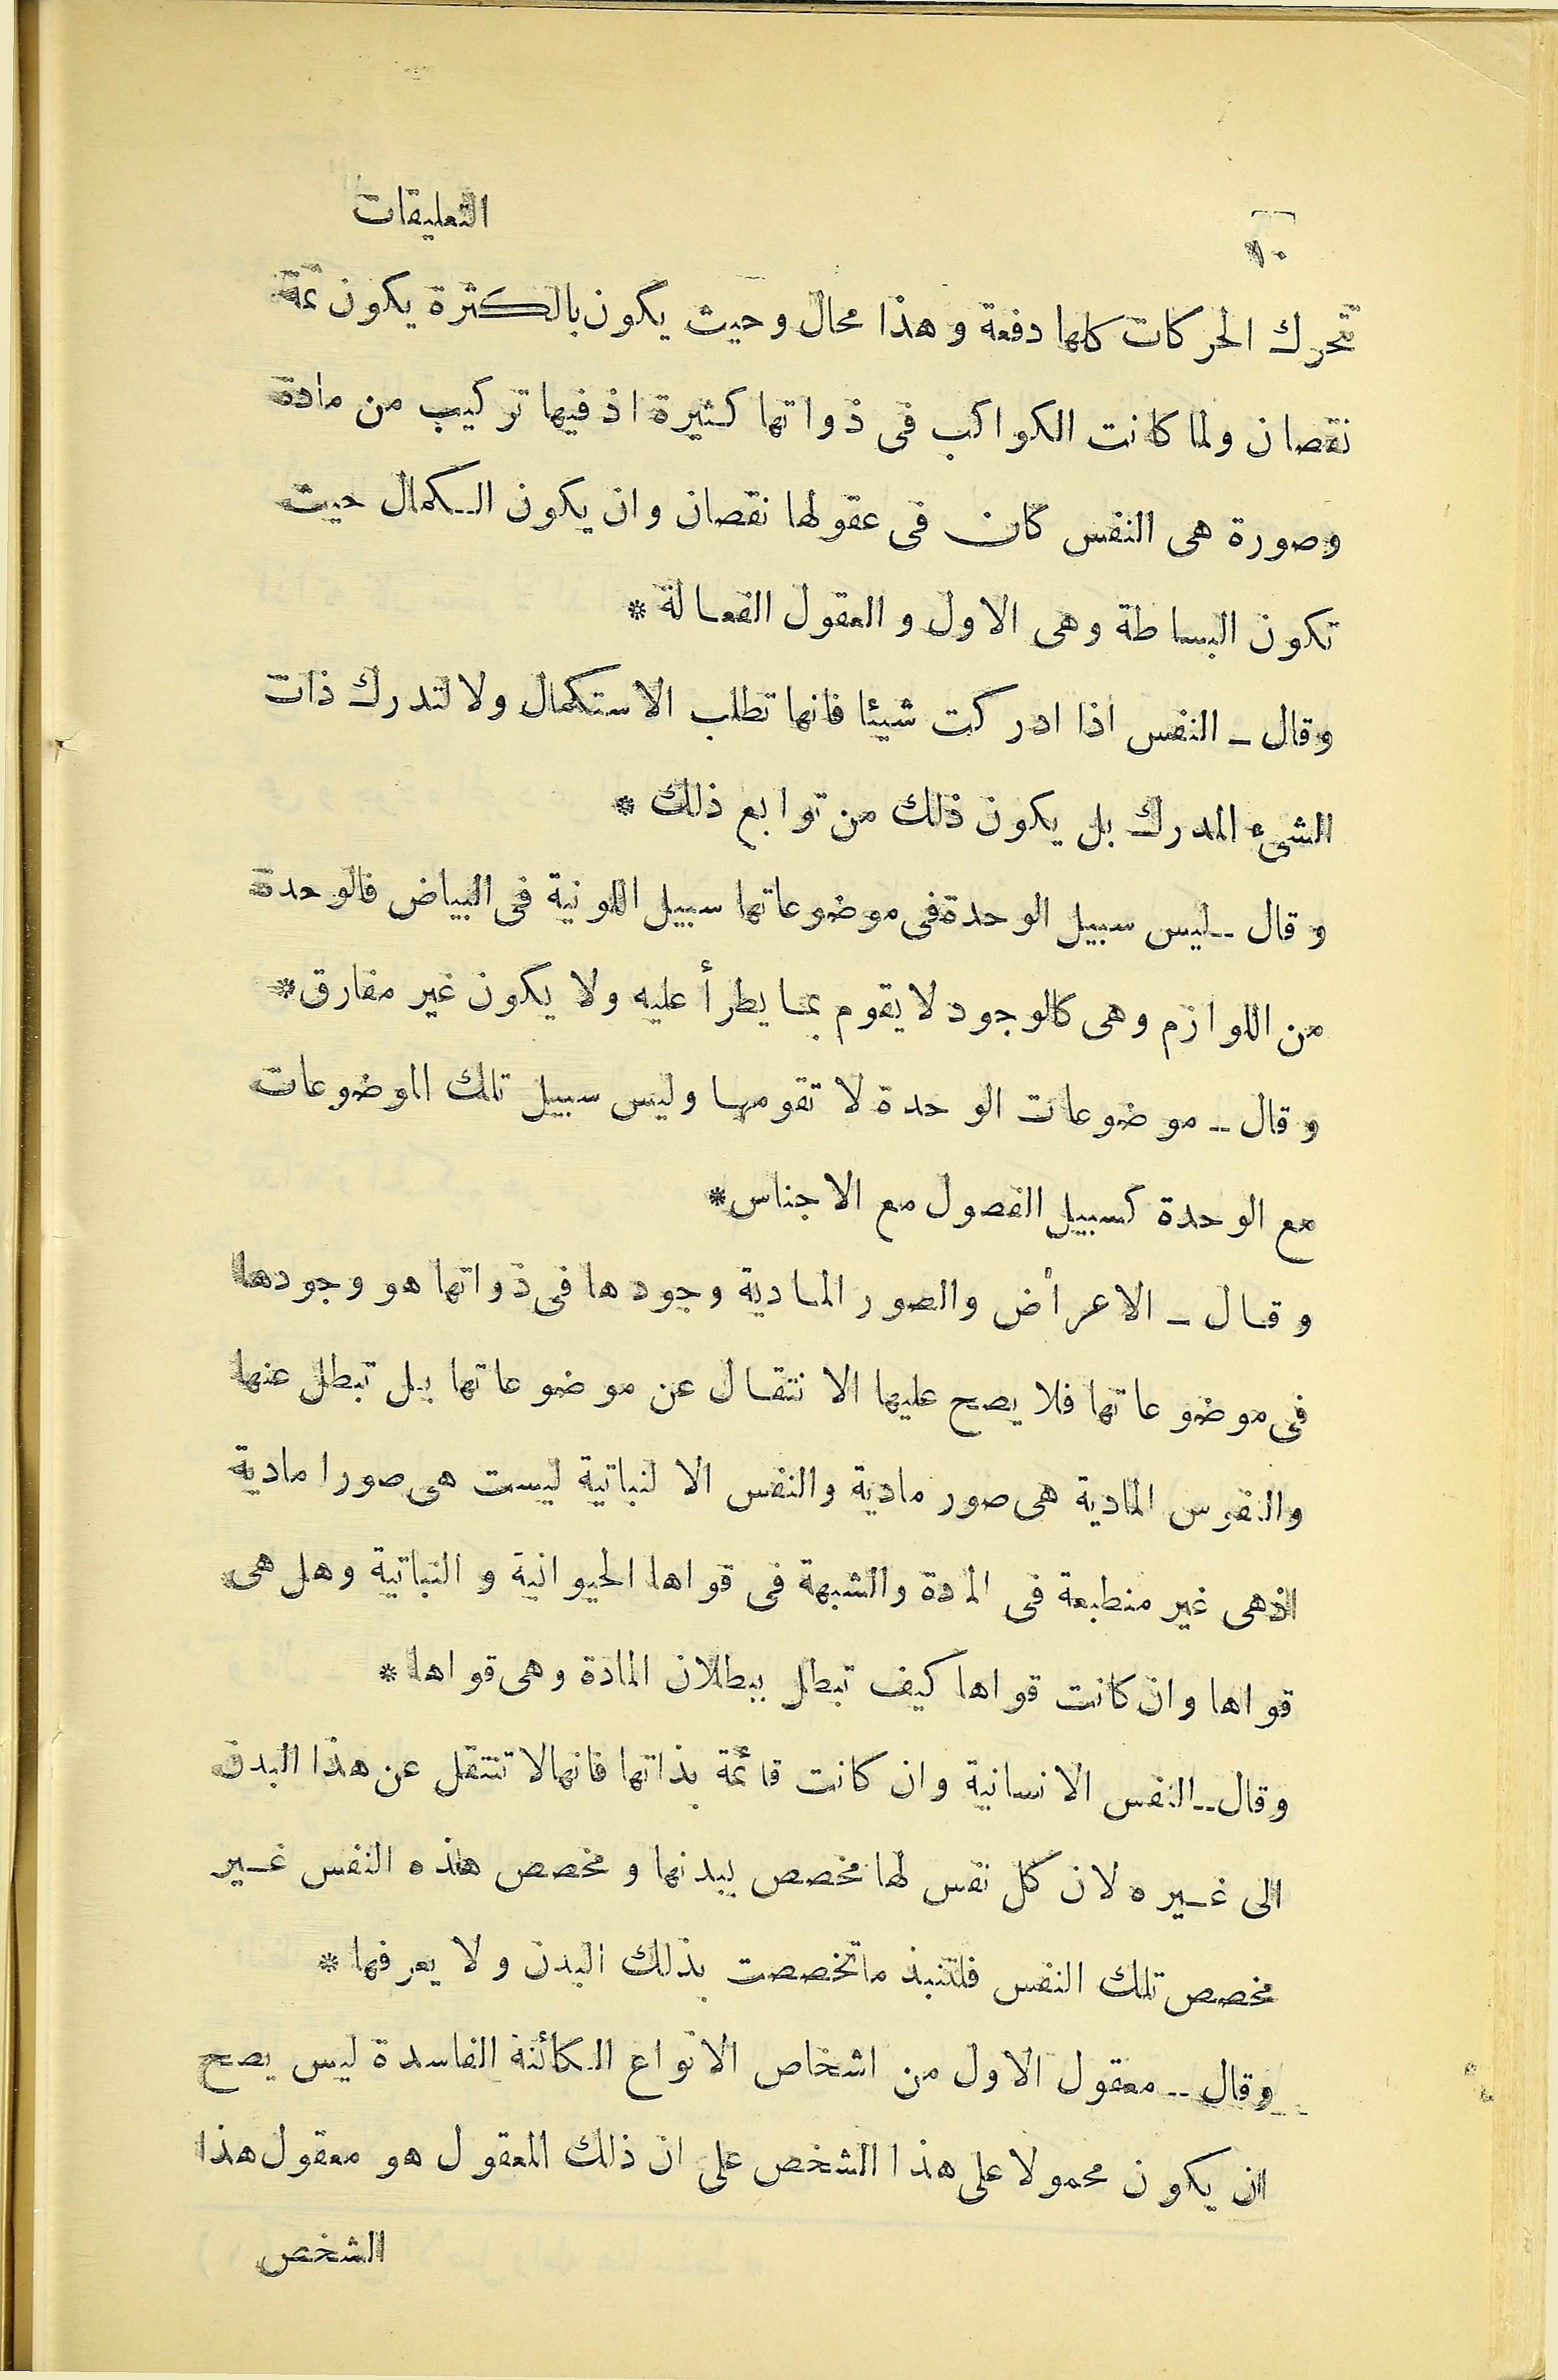 ١٠ التعليقات
تتحرك الحركات كلها دفعة وهذا محال وحيث يكون بالكثرة يكون ثمة
نقصان ولما كانت الكواكب فى ذواتها كثيرة اذ فيها تركيب من مادة
وصورة هى النفس كان فى عقولها نقصان وان يكون الكمال حيث
تكون البساطة وهى الاول والعقول الفعالة *
وقال ــ النفس اذا ادركت شيئا فانها تطلب الاستكمال ولا لتدرك ذات
الشىء المدرك بل يكون ذلك من توابع ذلك *
وقال ــ ليس سبيل الوحدة فى موضوعاتها سبيل اللونية فى البياض فالوحدة
من اللوازم وهى كالوجود لا يقوم بما يطرأ عليه ولا يكون غير مفارق *
وقال ــ موضوعات الوحدة لا تقومها وليس سبيل تلك الموضوعات
مع الوحدة كسبيل الفصول مع الاجناس *
وقال ــ الاعراض والصور المادية وجودها فى ذواتها هو وجودها
فى موضوعاتها فلا يصح عليها الانتقال عن موضوعاتها بل تبطل عنها
والنفوس المادية هى صور مادية والنفس الا لنباتية ليست هى صورا مادية
اذهى غير منطبعة فى المادة والشبهة فى قواها الحيوانية والنباتية وهل هى
قواها وان كانت قواها كيف تبطل ببطلان المادة وهى قواها *
وقال ــ النفس الانسانية وان كانت قائمة بذاتها فانها لا تنتقل عن هذا البدن
الى غيره لان كل نفس لها مخصص ببدنها ومخصص هذه النفس غير
مخصص تلك النفس فلتنبذ ما تخصصت بذلك البدن ولا يعرفها *
وقال ــ معقول الاول من اشخاص الانواع الكائنة الفاسدة ليس يصح
ان يكون محمولا على هذا الشخص على ان ذلك المعقول هو معقول هذا
الشخص